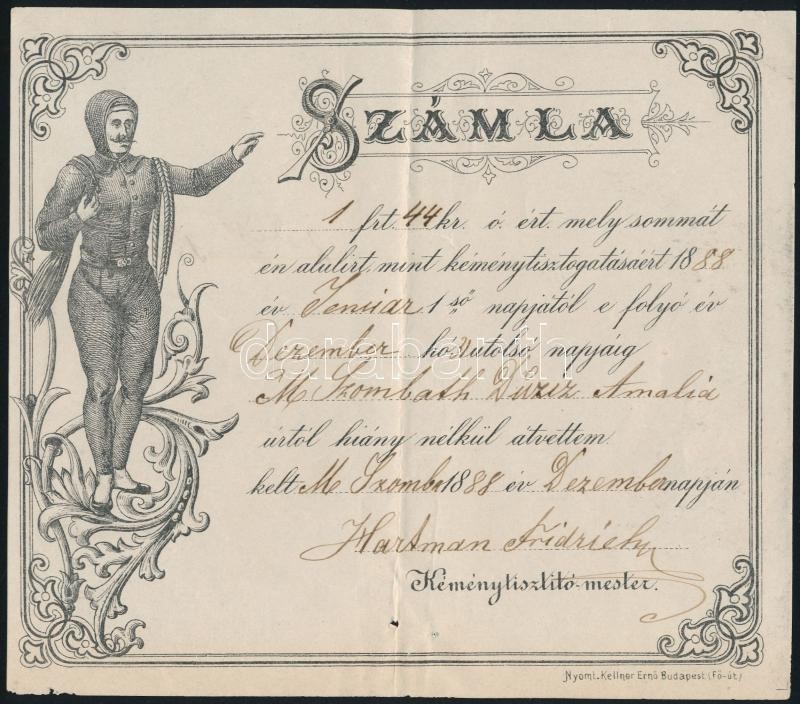 SZÁMLA
1 frt. 44 kr. ó. ért. mely sommát
én alulirt mint kéménytisztogatásáért 1888
év Januar 1 ső napjától e folyó év
Dezember hó 31 utolsó napjáig
M Szombath Amalia
úrtól hiány nélkül átvettem.
kelt M Szomb 1888 év Dezember napján
Hartman Fridrich
Kéménytisztító-mester.
Nyomt. Kellner Ernő Budapest (Fő-út)
darabanth
www.darabanth.com